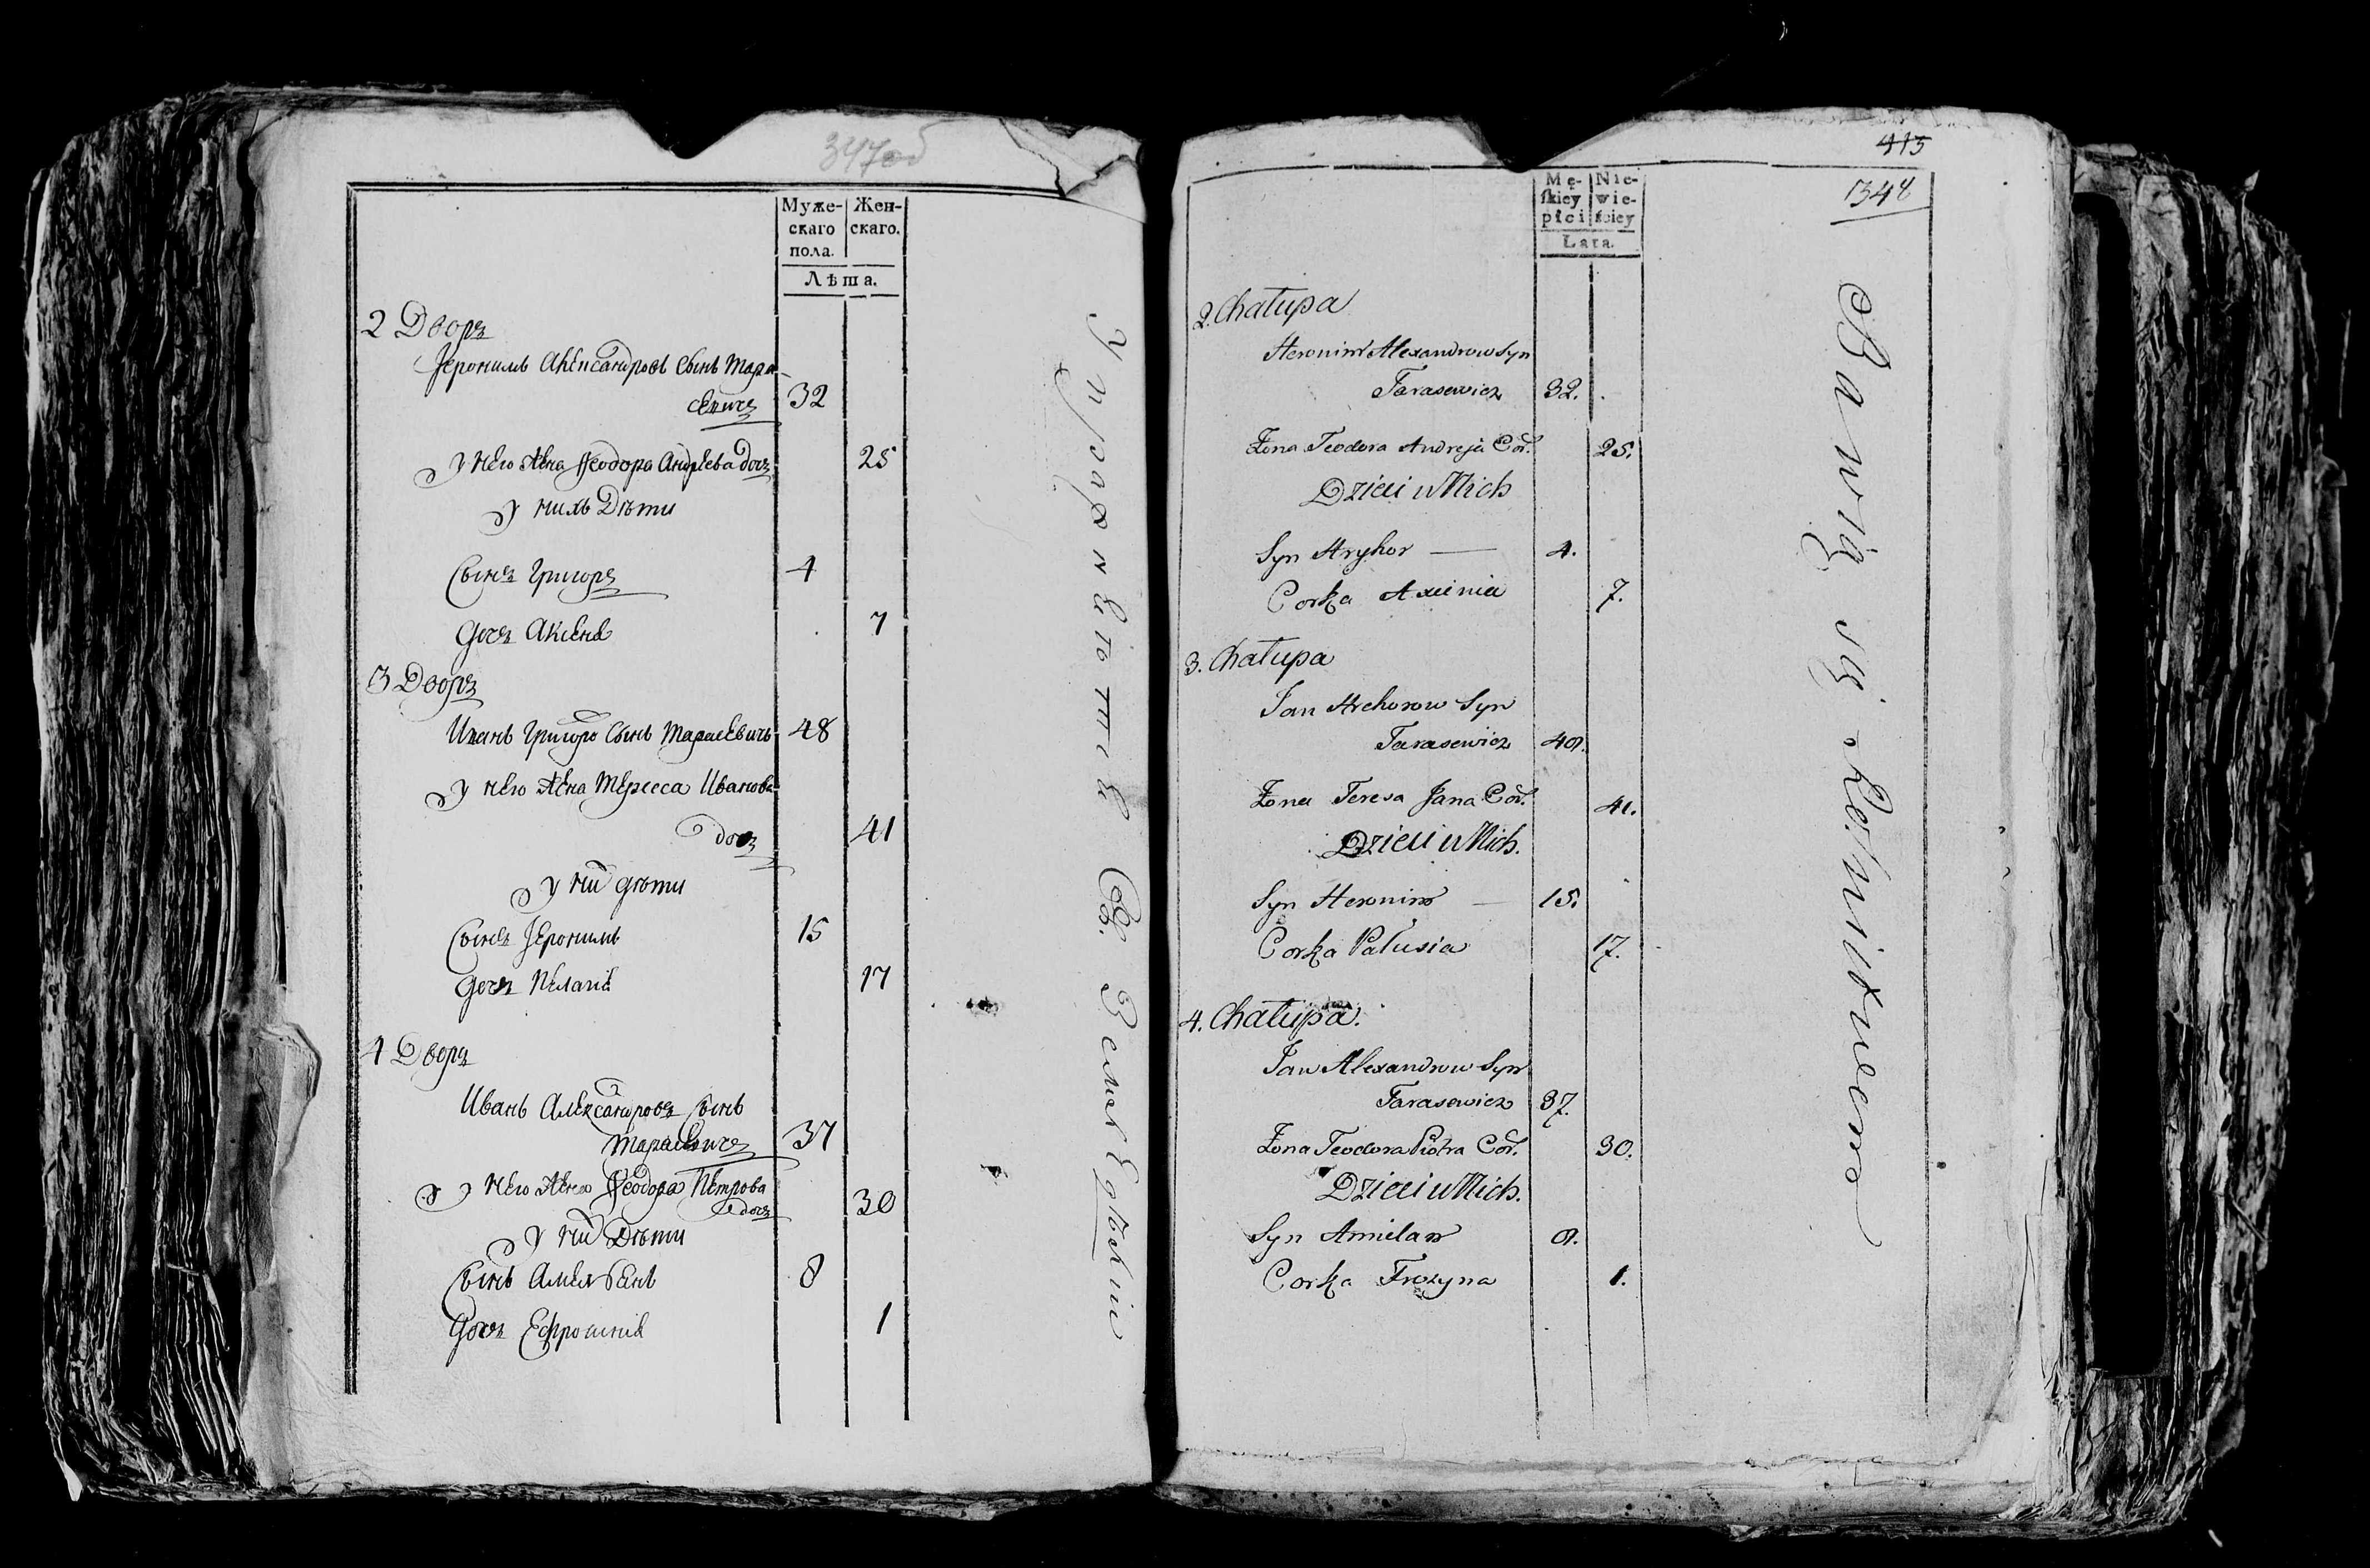 347об
Муже-
скаго
пола.
Жен-
скаго.
Лѣта.
2 Дворъ
Іеронимъ Александровъ Сынъ Тара-
севичъ 32
у Него Жена Феодора Андреева дочъ 25
у нихъ Дѣти
Сынъ Григоръ 4
Дочъ Аксеня 7
3 Дворъ
Иванъ Григоро Сынъ Тарасевичъ 48
у него Жена Тересса Иванова
дочъ 41
у них дѣти
Сынъ Іеронимъ 15
Дочъ Пелагея 17
4 Дворъ
Иванъ Александровъ Сынъ
Тарасевичъ 37
у Него Жена Феодора Петрова
дочъ 30
у них Дѣти
Сынъ Амельянъ 8
Дочъ Ефросиния 1
413
1348
Mę-
skiey
płci
Nie-
wie-
ściey
Lata.
2. Chałupa
Heronim Alexandrow Syn
Tarasewicz 32.
Żona Teodora Andreja Cór. 25.
Dzieci u Nich
Syn Hryhor — 4.
Corka Axinia 7.
3. Chałupa
Jan Hrehorow Syn
Tarasewicz 48.
Żona Teresa Jana Cór. 41.
Dzieci u Nich.
Syn Heronim — 15.
Corka Pałusia 17.
4. Chałupa.
Jan Alexandrow Syn
Tarasewicz 37.
Żona Teodora Piotra Cór. 30.
Dzieci u Nich.
Syn Amielan 8.
Corka Frozyna 1.